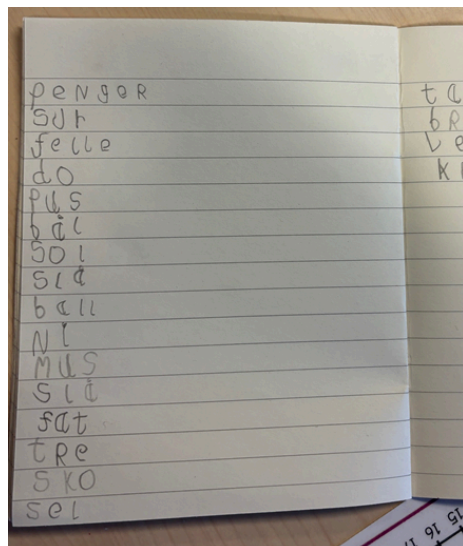 peNgeR
Sur
felle
do
PUS
bål
SOL
SLå
ball
Ni
MUS
SLå
fat
tRe
SKO
Sel
ta
bR
Le
K
15 16